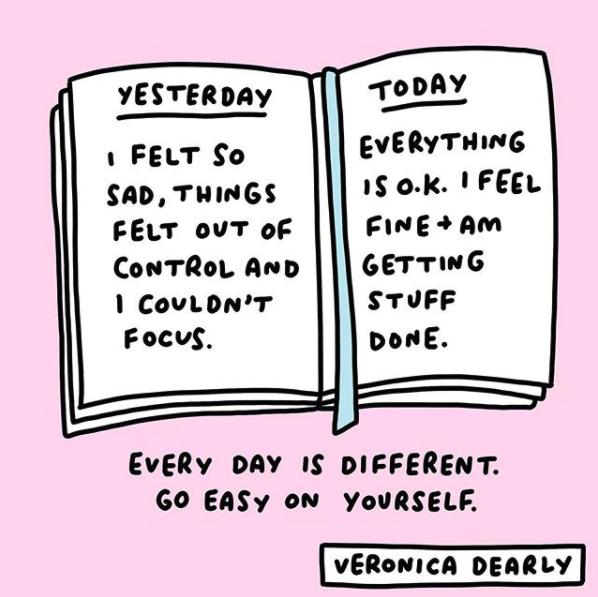 YESTERDAY
I FELT SO
SAD, THINGS
FELT OUT OF
CONTROL AND
I COULDN'T
FOCUS.
TODAY
EVERYTHING
IS O.K. I FEEL
FINE + AM
GETTING
STUFF
DONE.
EVERY DAY IS DIFFERENT.
GO EASY ON YOURSELF.
VERONICA DEARLY